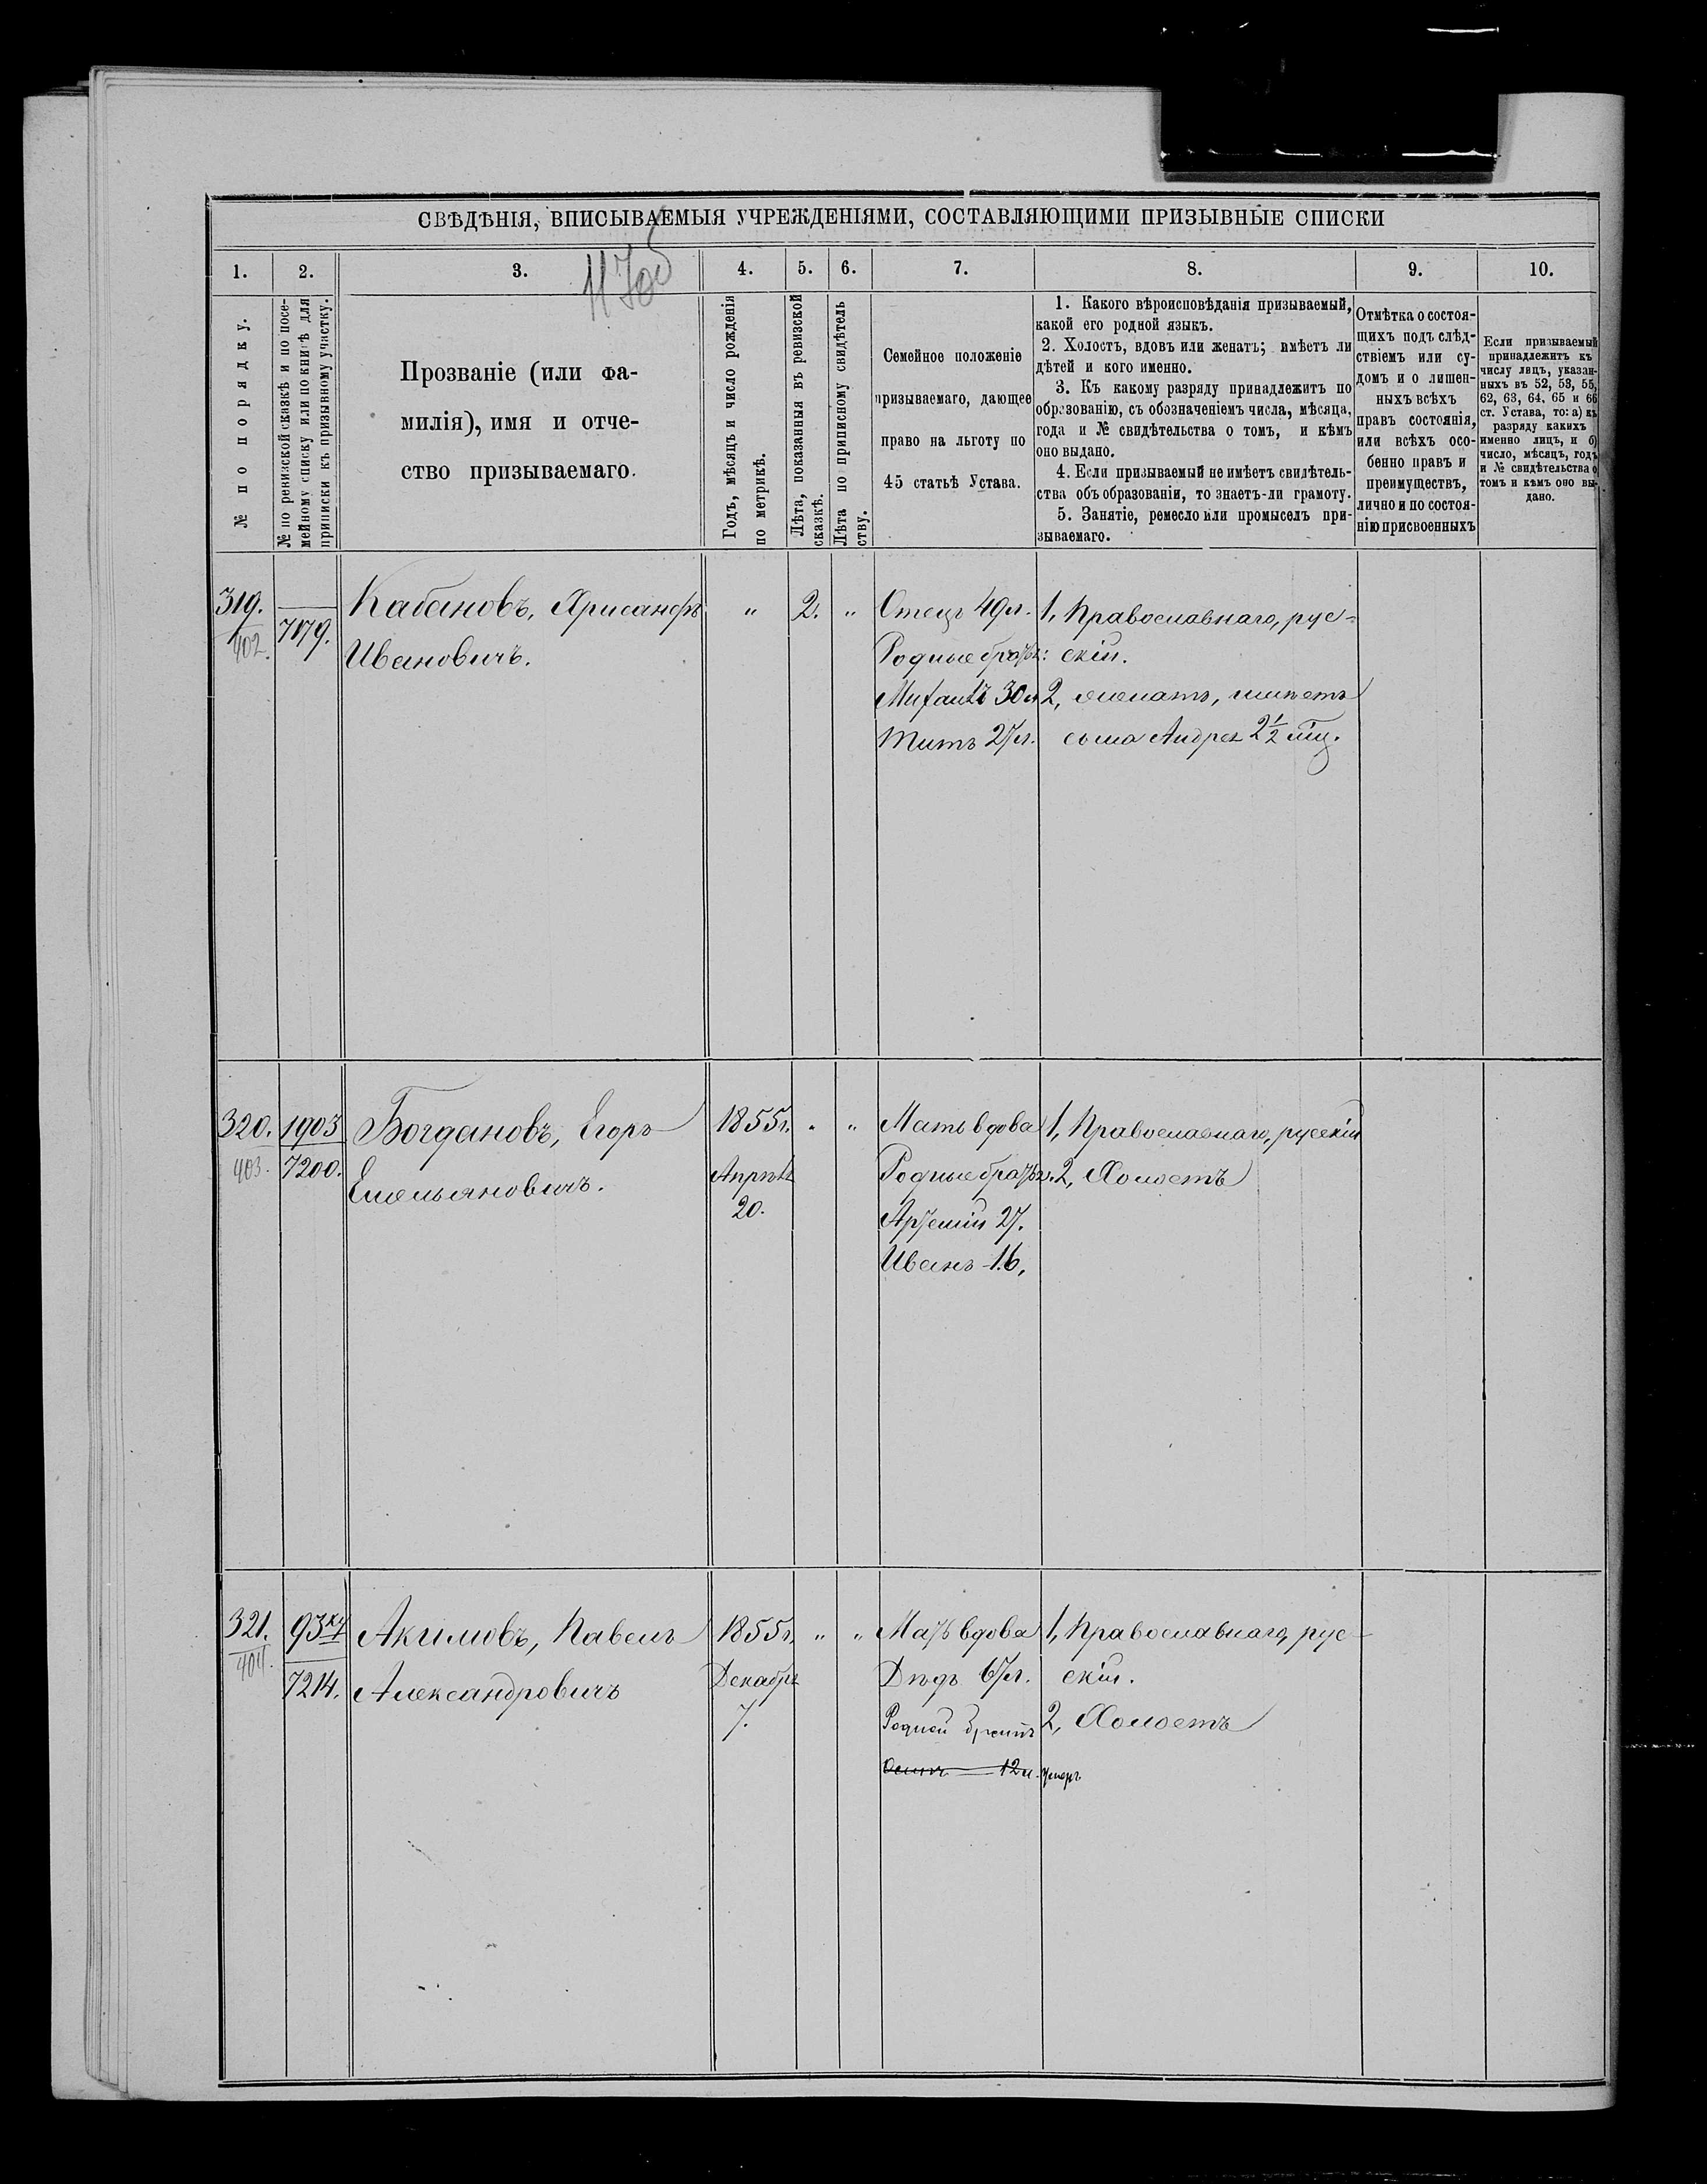 СВѢДѢНІЯ, ВПИСЫВАЕМЫЯ УЧРЕЖДЕНІЯМИ, СОСТАВЛЯЮЩИМИ ПРИЗЫВНЫЕ СПИСКИ
1. 2. 3. 4. 5. 6. 7. 8. 9. 10.
№ по порядку.
№ по ревизской сказкѣ и по посе-
мейному списку или по книгѣ для
приписки къ призывному участку.
Прозваніе (или фа-
милія), имя и отче-
ство призываемаго.
Годъ, мѣсяцъ и число рожденія
по метрикѣ.
Лѣта, показанныя въ ревизской
сказкѣ.
Лѣта по приписному свидѣтель
ству.
Семейное положеніе
призываемаго, дающее
право на льготу по
45 статьѣ Устава.
1. Какого вѣроисповѣданія призываемый,
какой его родной языкъ.
2. Холостъ, вдовъ или женатъ; имѣетъ ли
дѣтей и кого именно.
3. Къ какому разряду принадлежитъ по
образованію, съ обозначеніемъ числа, мѣсяца,
года и № свидѣтельства о томъ, и кѣмъ
оно выдано.
4. Если призываемый не имѣетъ свидѣтель-
ства объ образованіи, то знаетъ-ли грамоту.
5. Занятіе, ремесло или промыселъ при-
зываемаго.
Отмѣтка о состоя-
щихъ подъ слѣд-
ствіемъ или су-
домъ и о лишен-
ныхъ всѣхъ
правъ состоянія,
или всѣхъ осо-
бенно правъ и
преимуществъ,
лично и по состоя-
нію присвоенныхъ
Если призываемый
принадлежитъ къ
числу лицъ, указан-
ныхъ въ 52, 53, 55,
62, 63, 64, 65 и 66
ст. Устава, то: а) къ
разряду какихъ
именно лицъ, и б)
число, мѣсяцъ, годъ
и № свидѣтельства о
томъ и кѣмъ оно вы-
дано.
319.
402.
7179.
Кабановъ, Хрисанфъ
Ивановичъ.
" 2. "
Отецъ 49 л.
Родные братья:
30 л
Титъ 27 л.
1, Православнаго, рус-
скій.
2, женатъ, имѣетъ
сына Андрея 2 1/2 мѣц.
320.
403.
1903
7200.
Богдановъ, Егоръ
Емельяновичъ.
1855 г.
Апрѣля
20.
" "
Мать вдова
Родные братья.
Артемій 27.
Иванъ 16,
1, Православнаго, русскій
2, Холостъ
321.
404.
7214.
Акимовъ, Павелъ
Александровичъ
1855 г.
Декабря
7.
" "
Мать вдова
Дѣдъ 67 л.
Родной братъ
Осипъ 12 л. умеръ
1, Православнаго, рус-
скій.
2, Холостъ